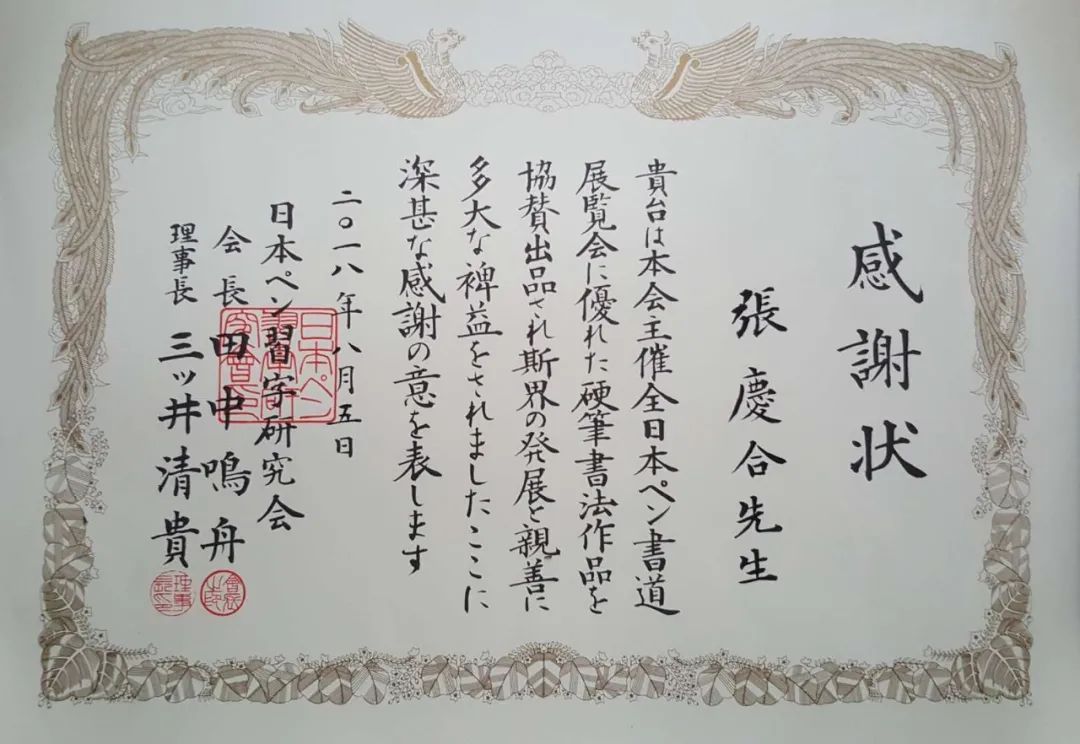 感謝状
張慶合先生
貴台は本会主催全日本ペン書道
展覧会に優れた硬筆書法作品を
協賛出品され斯界の発展と親善に
多大な裨益をされましたここに
深甚な感謝の意を表します
二〇一八年八月五日
日本ペン習字研究会
会長 田中鳴舟
理事長 三ッ井清貴